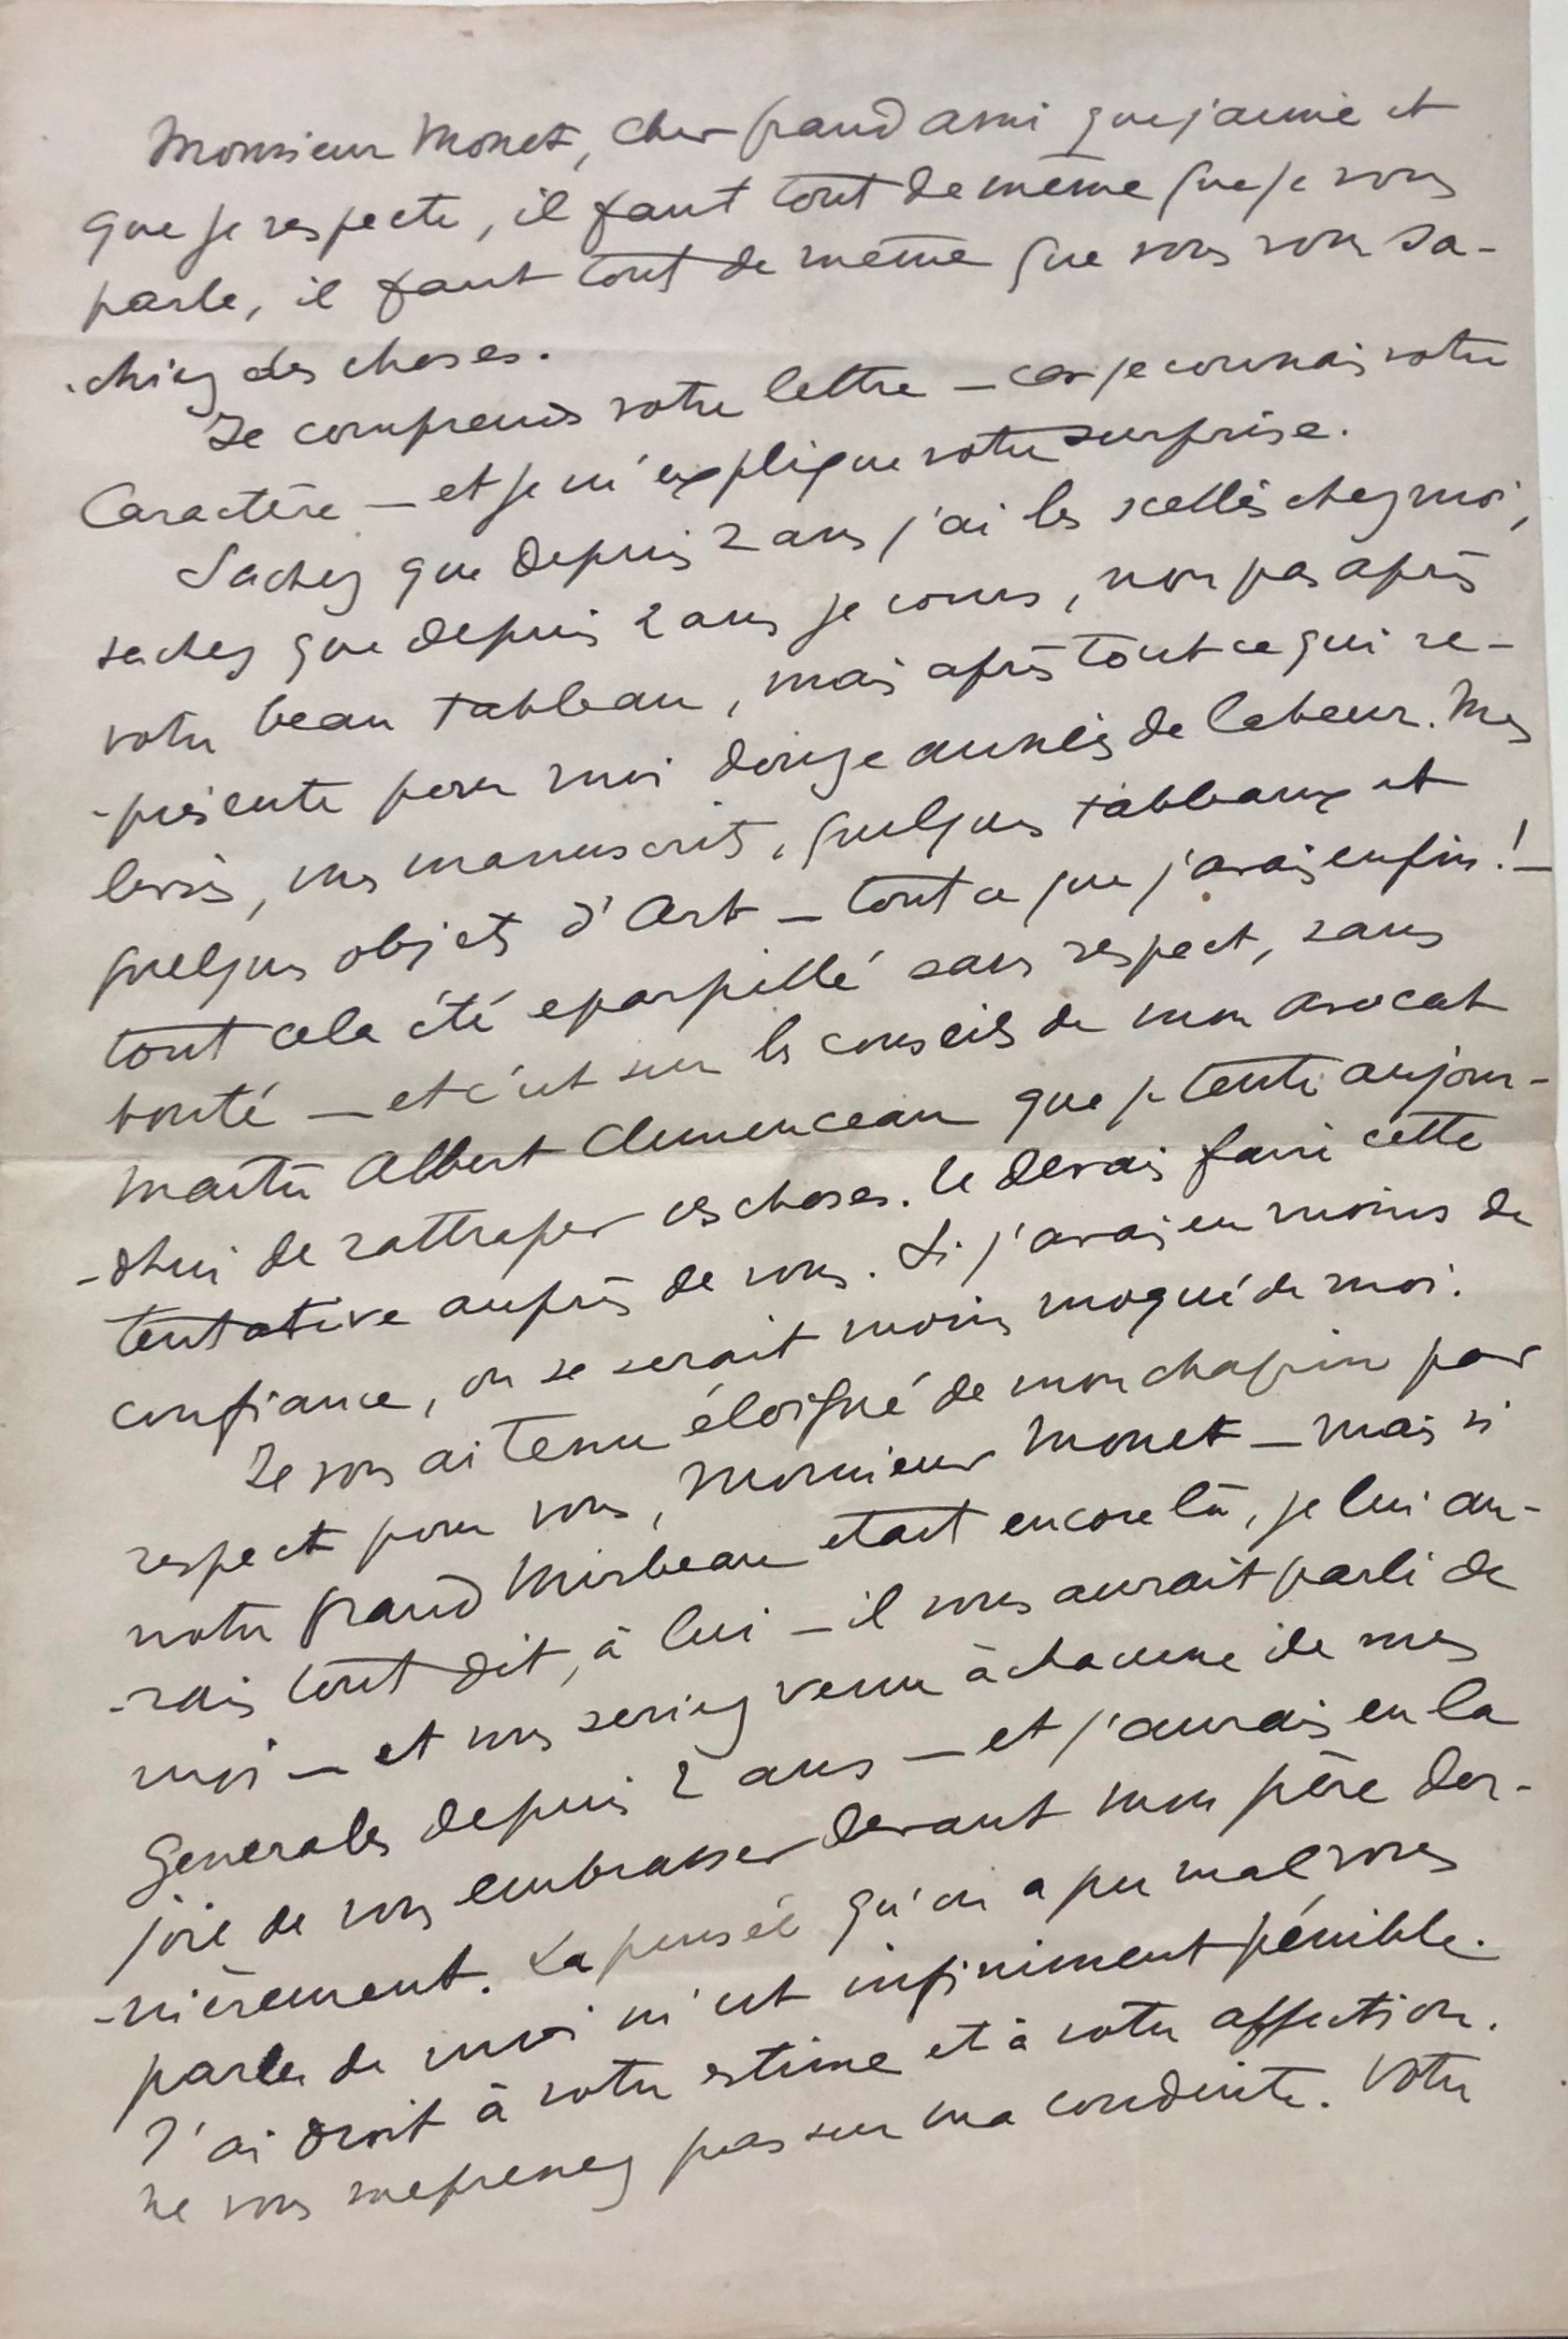 Monsieur Monet, cher grand ami que j'aime et
que je respecte, il faut tout de même que je vous
parle, il faut tout de même que vous vous sa-
-chiez des choses.
Je comprends votre lettre — car je connais votre
Caractère — et je m'explique votre surprise.
Sachez que depuis 2 ans j'ai les scellés chez moi,
sachez que depuis 2 ans je cours, non pas après
votre beau tableau, mais après tout ce qui re-
-présente pour moi douze années de labeur. Mes
livres, mes manuscrits, quelques tableaux et
quelques objets d'Art — tout ce que j'avais enfin ! —
tout cela été eparpillé sans respect, sans
bonté — et c'est sur les conseils de mon avocat
maître Albert Clemenceau que je tente aujour-
-d'hui de rattraper ces choses. Je devais faire cette
tentative auprès de vous. Si j'avais eu moins de
confiance, on se serait moins moqué de moi.
Je vous ai tenu éloigné de mon chagrin par
respect pour vous, Monsieur Monet — mais si
notre grand Mirbeau etait encore là, je lui au-
-rais tout dit, à lui — il vous aurait parlé de
moi — et vous seriez venu à chacune de mes
Generales depuis 2 ans — et j'aurais eu la
joie de vous embrasser devant mon père der-
-nièrement. La pensée qu'on a pu mal vous
parler de moi m'est infiniment pénible.
J'ai droit à votre estime et à votre affection.
Ne vous meprenez pas sur ma conduite. Votre